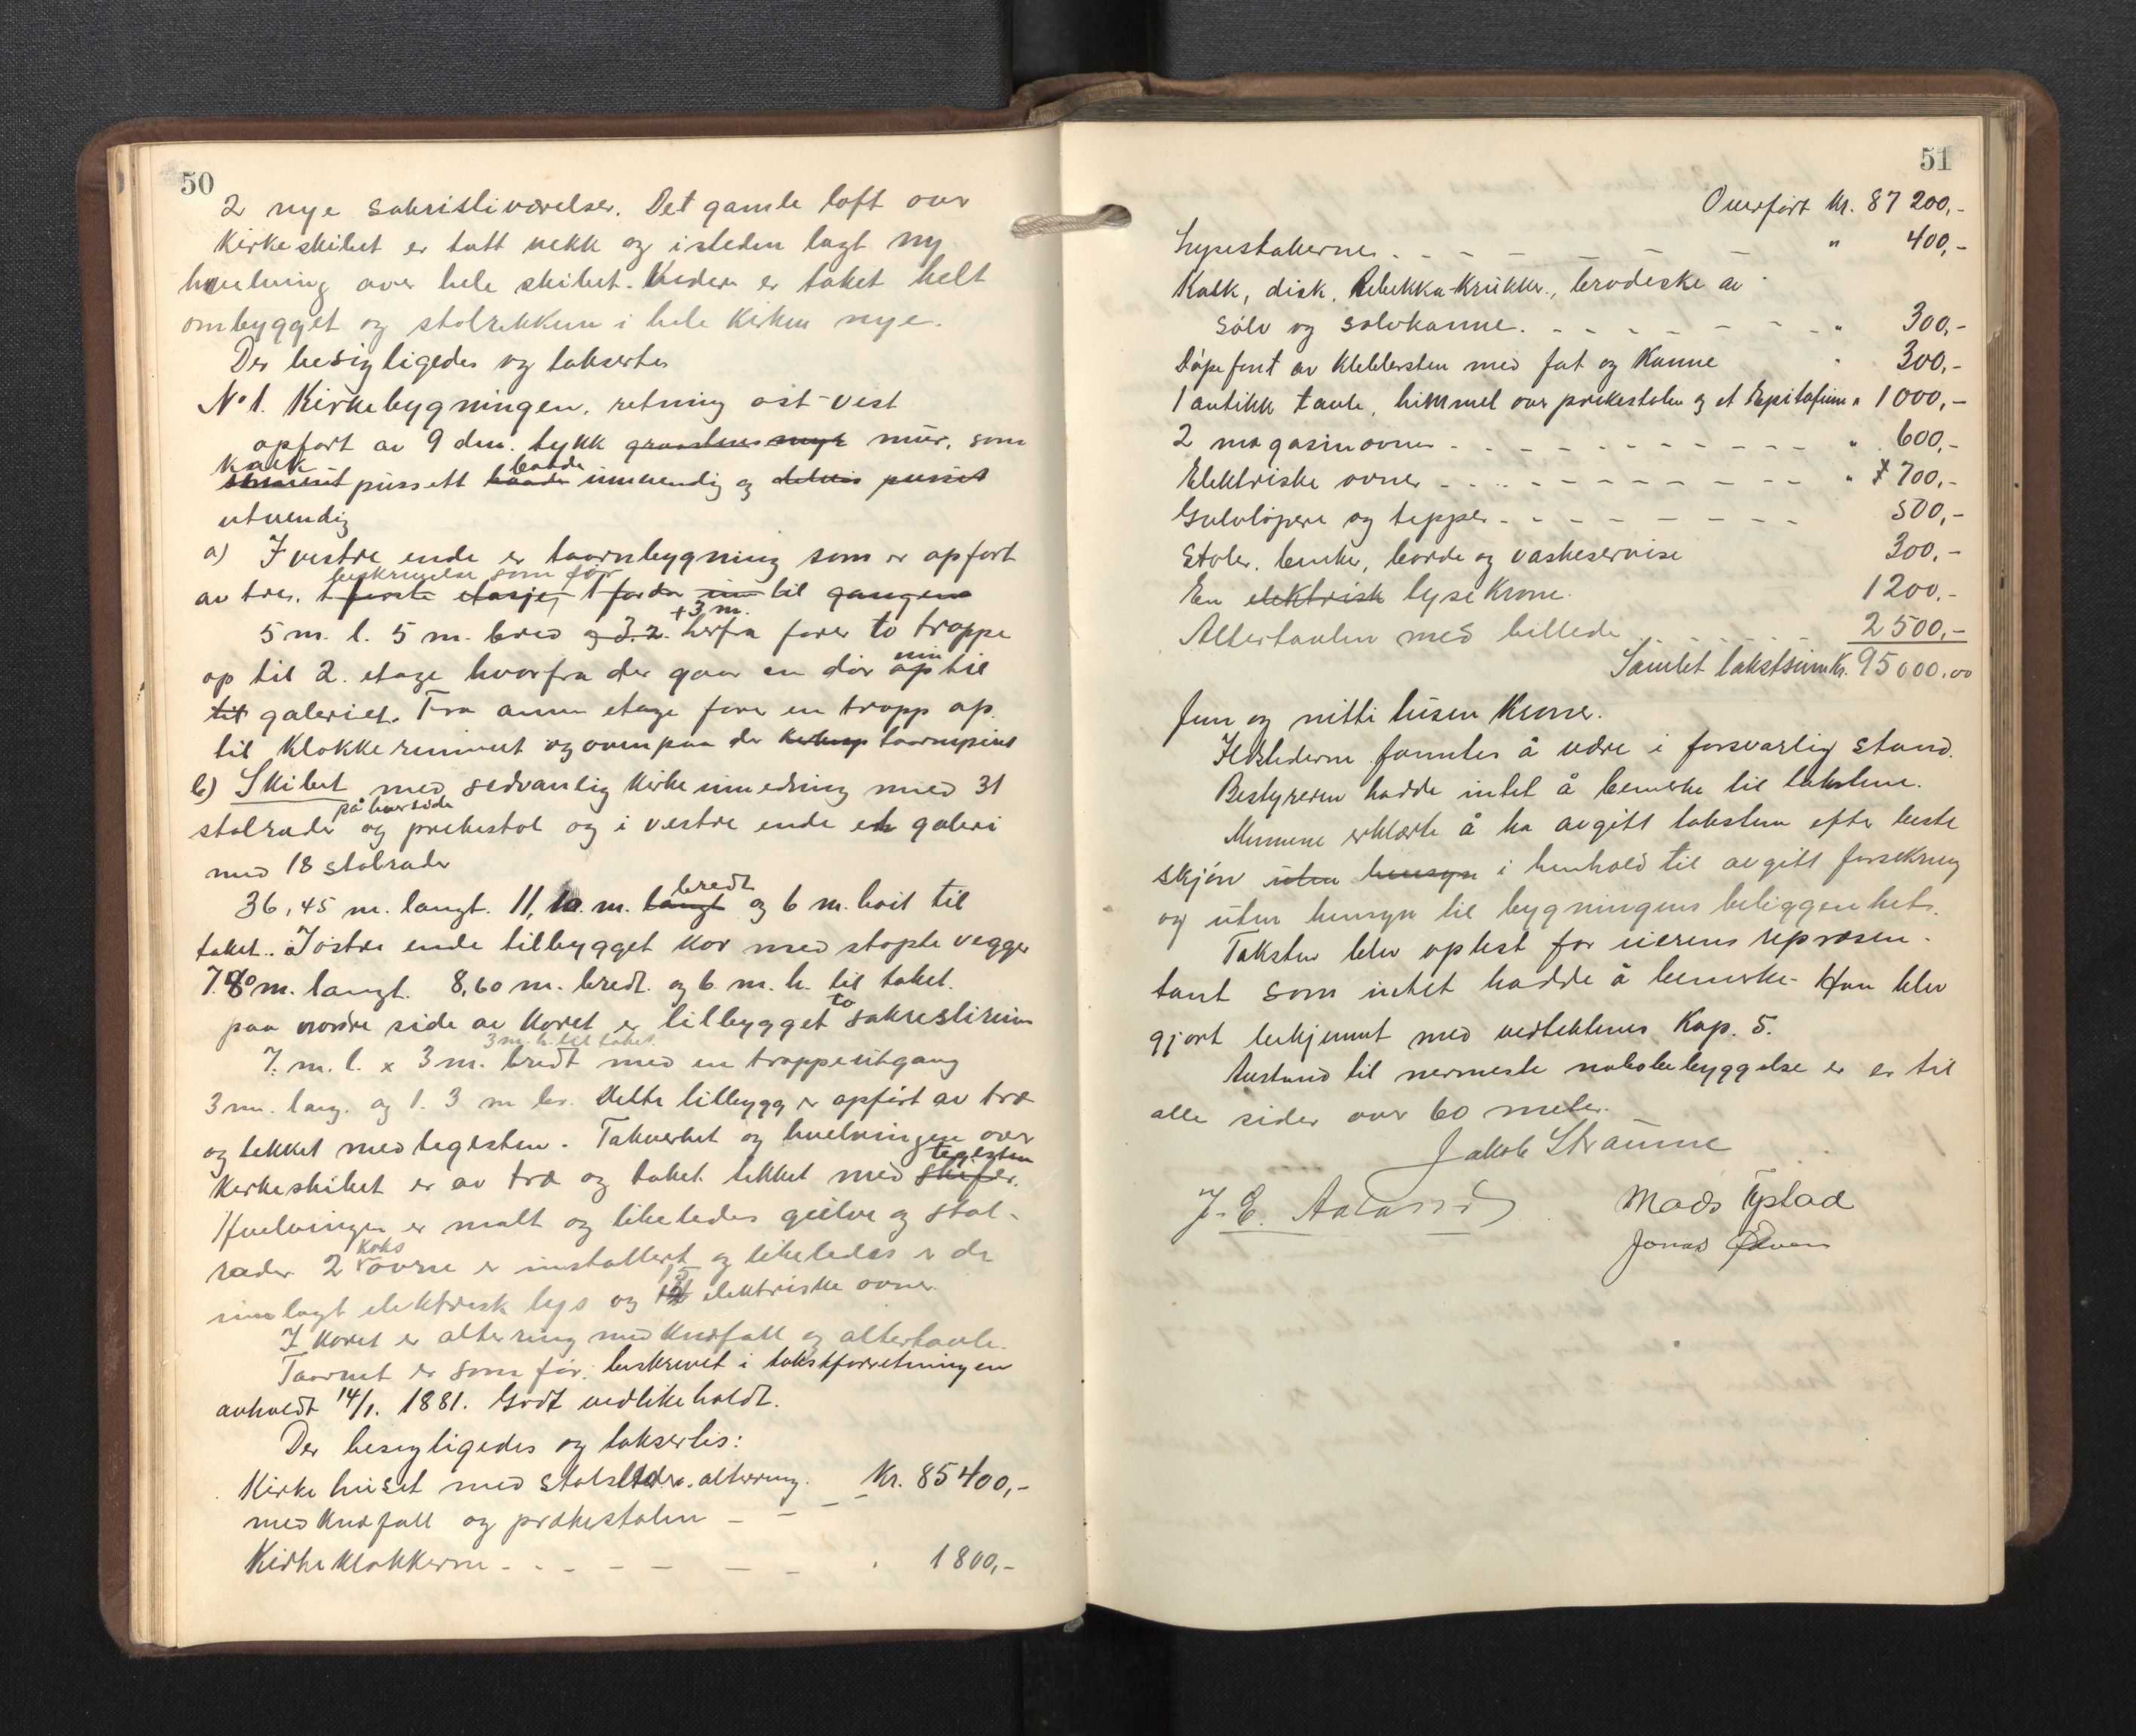 50
2 nye sakristiværelser. Det gamle loft over
Kirkeskibet er tatt vekk og isteden lagt ny
hvelving over hele skibet. Videre er taket helt
ombygget og stolrekken i hele Kirken nye.
Der besigtigedes og taksertes
No 1. Kirkebygningen, retning ost-vest
opført av 9 dm. tykk mur, som
Kalk
pussett baade innvendig og delvis pusset
utvendig
a) I vestre ende er taarnbygning som er opført
beskrivelse som før
av tre. I første etasje, 1 fordør inn til gangen
+3 m.
5 m. l. 5 m. bred og 3.2. herfra fører to trappe
inn
op til 2. etage hvorfra der gaar en dør op til
til galeriet. Fra annen etage fører en trapp op
til Klokkerummet og ovenpaa der taarnspiret
b) Skibet med sedvanlig Kirkeinnredning med 31
på hver side
stolrader og prekestol og i vestre ende et galeri
med 18 stolrader
bredt
36,45 m. langt. 11,10 m. langt og 6 m. høit til
taket. I østre ende tilbygget Kor med støpte vegger
m. langt. 8,60 m. bredt. og 6. m. h. til taket.
to
paa nordre side av Koret er tilbygget sakrestirum
3 m. h. til taket.
7. m. l. x 3 m. bredt med en trappeutgang
3 m. lang. og 1.3 m br. Dette tilbygg er opført av træ
og tekket med teglsten. Takverket og hvelvingen over
teglsten
Kirkeskibet er av træ og taket tekket med skifer.
Hvelvingen er malt og likeledes gulve og stol-
Koks
rader. 2 ovne er installert og likeledes er der
15
innlagt elektrisk lys og elektriske ovner.
I Koret er altering med Knefall og altertavle.
Taarnet er som før beskrevet i takstforretningen
avholdt 14/1. 1881. Godt vedlikeholdt.
Der besigtigedes og taksertes:
Kirkehuset med altering. Kr. 85400,-
med Knefall og prækestolen - -
Kirkeklokkerne - - - - - - 1800,-
51
Overført Kr. 87 200,-
Lysestakerne - - - - - - " 400,-
Kalk, disk, Rebekka-Krukke, brødeske av
Sølv og sølvkanne. - - - - - - " 300,-
Døpefont av Klebbersten med fat og Kanne " 300,-
1 antikk tavle, himmel over prekestolen og et Epitafium " 1000,-
2 magasinovner - - - - - - - " 600,-
Elektriske ovner - - - - - - - " 700,-
Gulvløpere og tepper - - - - - - 500,-
Stoler, benker, borde og vaskeservise 300,-
En elektrisk lyseKrone. 1200,-
Altertavlen med billede - - - - - 2500,-
Samlet takstsum Kr. 95000,00
Fem og nitti tusen Kroner.
Ildstederne fantes å være i forsvarlig stand.
Bestyreren hadde intet å bemerke til takstene.
Mennene erklærte å ha avgitt taksten efter beste
skjøn uten hensyn i henhold til avgitt forsikring
og uten hensyn til bygningens beliggenhet.
Taksten blev oplest for eierens represen-
tant som intet hadde å bemerke. Han blev
gjort bekjennt med vedtektenes Kap. 5.
Avstand til nermeste nabobebyggelse er er til
alle sider over 60 meter.
Jakob Straume
J. E.
Mads
Jonas